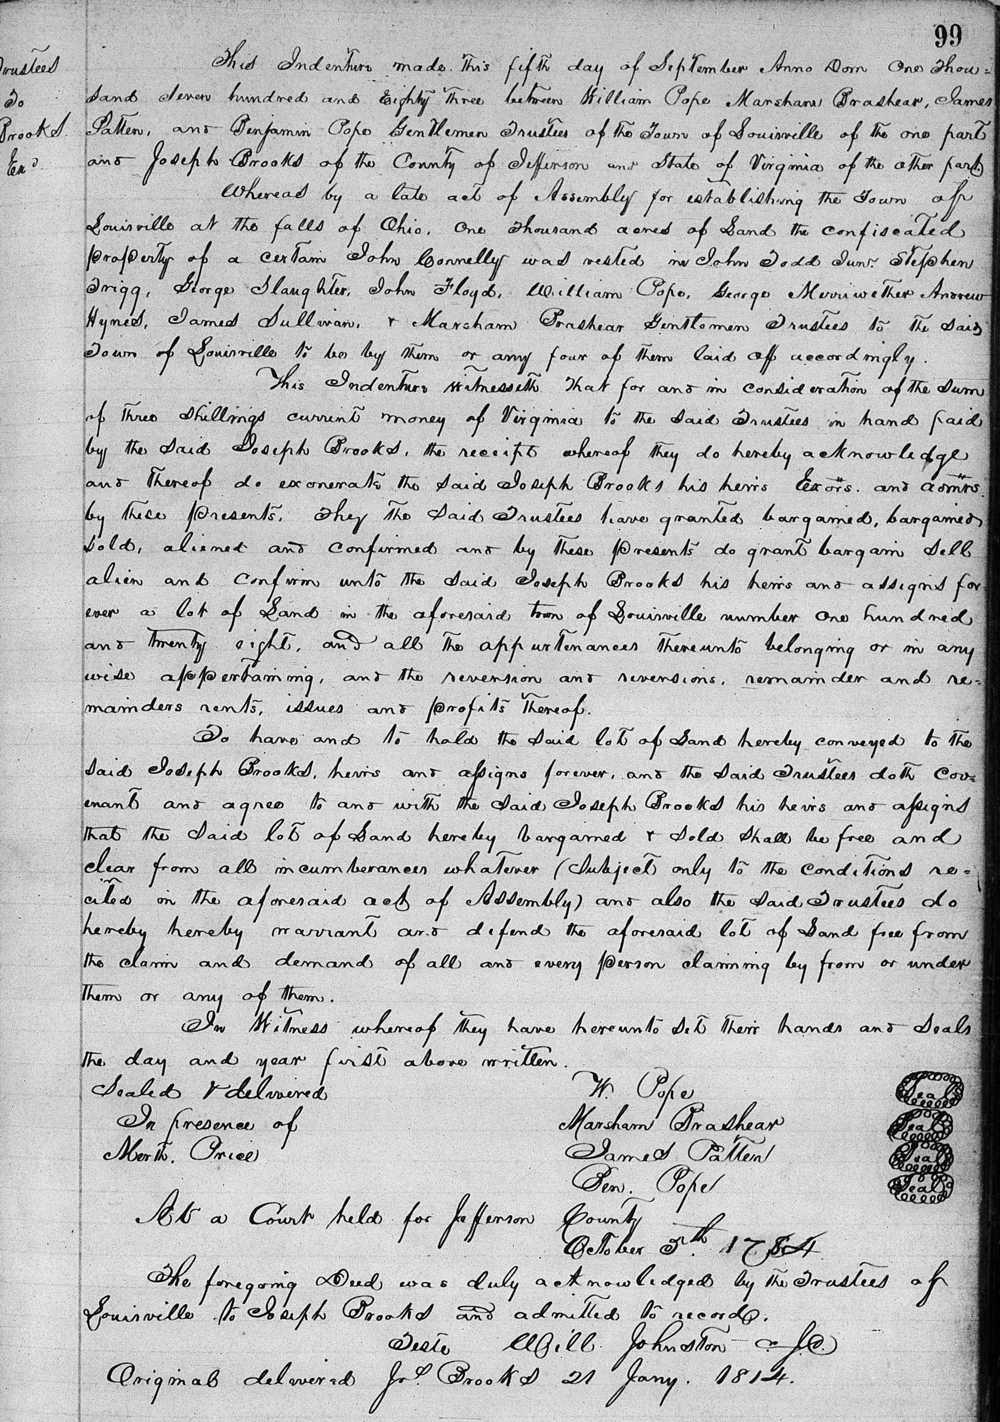 99
Trustees
To
Brooks.
Exd.
This Indenture made this fifth day of September Anno Dom One Thou=
sand Seven hundred and Eighty Three between William Pope Marsham Brashear, James
Patten, and Benjamin Pope Gentlemen Trustees of the Town of Louisville of the one part
and Joseph Brooks of the County of Jefferson and State of Virginia of the other part
Whereas by a late act of Assembly for establishing the Town of
Louisville at the falls of Ohio. One Thousand acres of Land the confiscated
property of a certain John Connelly was vested in John Todd Junr. Stephen
Trigg, George Slaughter, John Floyd, William Pope, George Merriwether Andrew
Hynes, James Sullivan, & Marsham Brashear Gentlemen Trustees to the Said
Town of Louisville to be by them or any four of them laid off accordingly.
This Indenture Witnesseth That for and in consideration of the Sum
of three Shillings current money of Virginia to the Said Trustees in hand paid
by the Said Joseph Brooks, the receipt whereof they do hereby acknowledge
and thereof do exonerate the Said Joseph Brooks his heirs Exors. and admrs.
by these presents. They the Said Trustees have granted bargained, bargained
Sold, aliened and confirmed and by these presents do grant bargain Sell
alien and confirm unto the Said Joseph Brooks his heirs and assigns for
ever a lot of Land in the aforesaid town of Louisville number One hundred
and twenty eight, and all the appurtenances thereunto belonging or in any
wise appertaining, and the reversion and reversions, remainder and re=
mainders rents, issues and profits thereof.
To have and to hold the Said lot of Land hereby conveyed to the
Said Joseph Brooks, heirs and assigns forever, and the Said Trustees doth Cov=
enant and agree to and with the Said Joseph Brooks his heirs and assigns
that the Said lot of Land hereby bargained & Sold Shall be free and
clear from all incumberances whatever (Subject only to the conditions re=
cited in the aforesaid act of Assembly) and also the Said Trustees do
hereby hereby warrant and defend the aforesaid lot of Land free from
the claim and demand of all and every person claiming by from or under
them or any of them.
In Witness whereof they have hereunto Set their hands and Seals
the day and year first above written.
Sealed & delivered W. Pope Seal
In presence of Marsham Brashear Seal
Mert. Price James Patten Seal
Ben. Pope Seal
At a Court held for Jefferson County
October 5th. 1784
The foregoing Deed was duly acknowledged by the Trustees of
Louisville to Joseph Brooks and admitted to record.
Teste Will Johnston
Original delivered Js. Brooks 21 Jany. 1814.